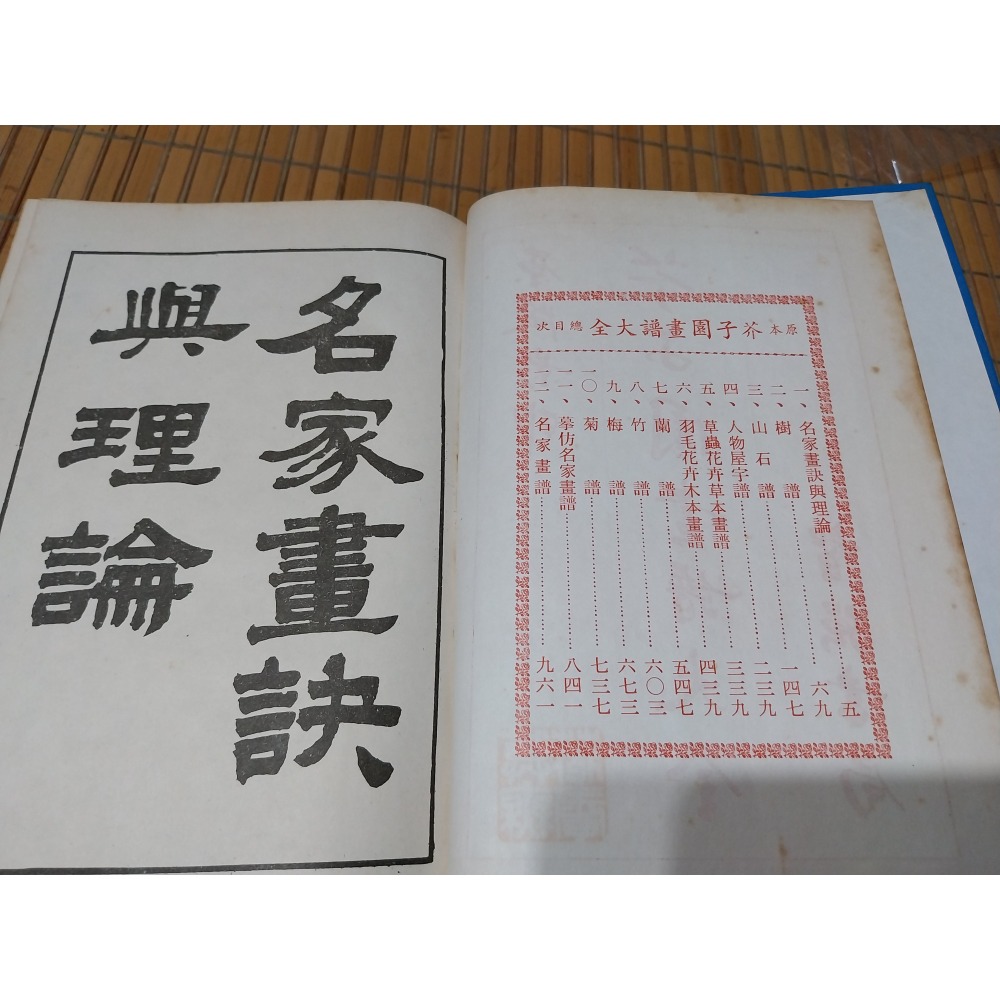 原本芥子園畫譜大全總目次
一、名家畫訣與理論……………五
二、樹譜……………六九
三、山石譜……………一四七
四、人物屋宇譜……………二三九
五、草蟲花卉草本畫譜……………三三九
六、羽毛花卉木本畫譜……………四三九
七、蘭譜……………五四七
八、竹譜……………六〇三
九、梅譜……………六七三
一〇、菊譜……………七三七
一一、摹仿名家畫譜……………八四一
一二、名家畫譜……………九六一
名家畫訣
與理論